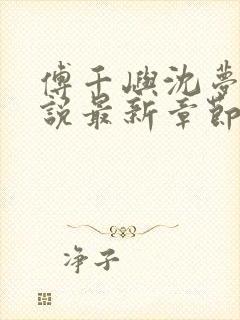 傅千屿沈夢
說最新章節
净子